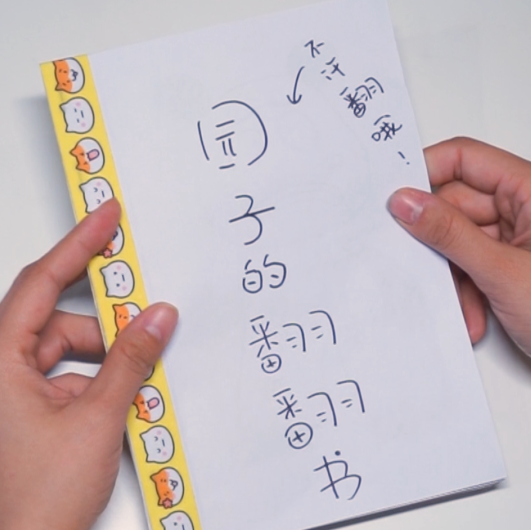 不许翻哦！
子的翻翻书